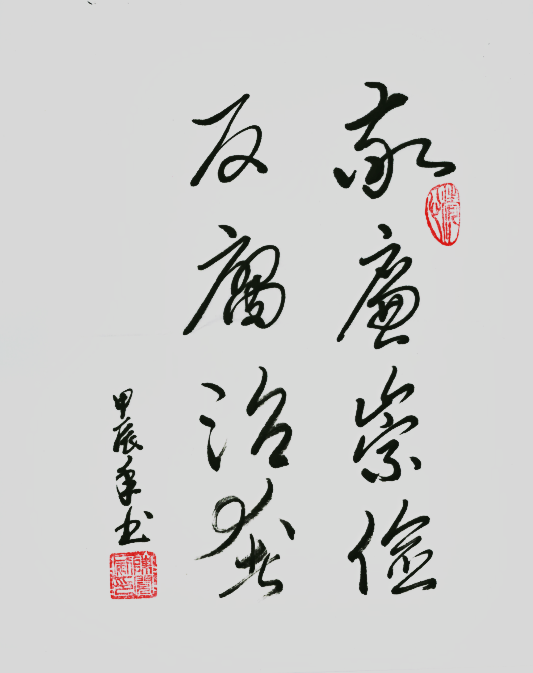 敬廉崇俭
反腐治奢
甲辰年书